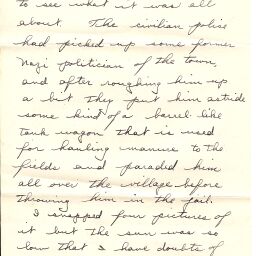 to see what it was all
about. The civilian police
had picked up some former
Nazi politician of the town,
and after roughing him up
a bit they put him astride
some kind of a barrel-like
tank wagon that is used
for hauling manure to the
fields and paraded him
all over the village before
throwing him in the jail.
I snapped four pictures of
it but the sun was so
low that I have doubts of